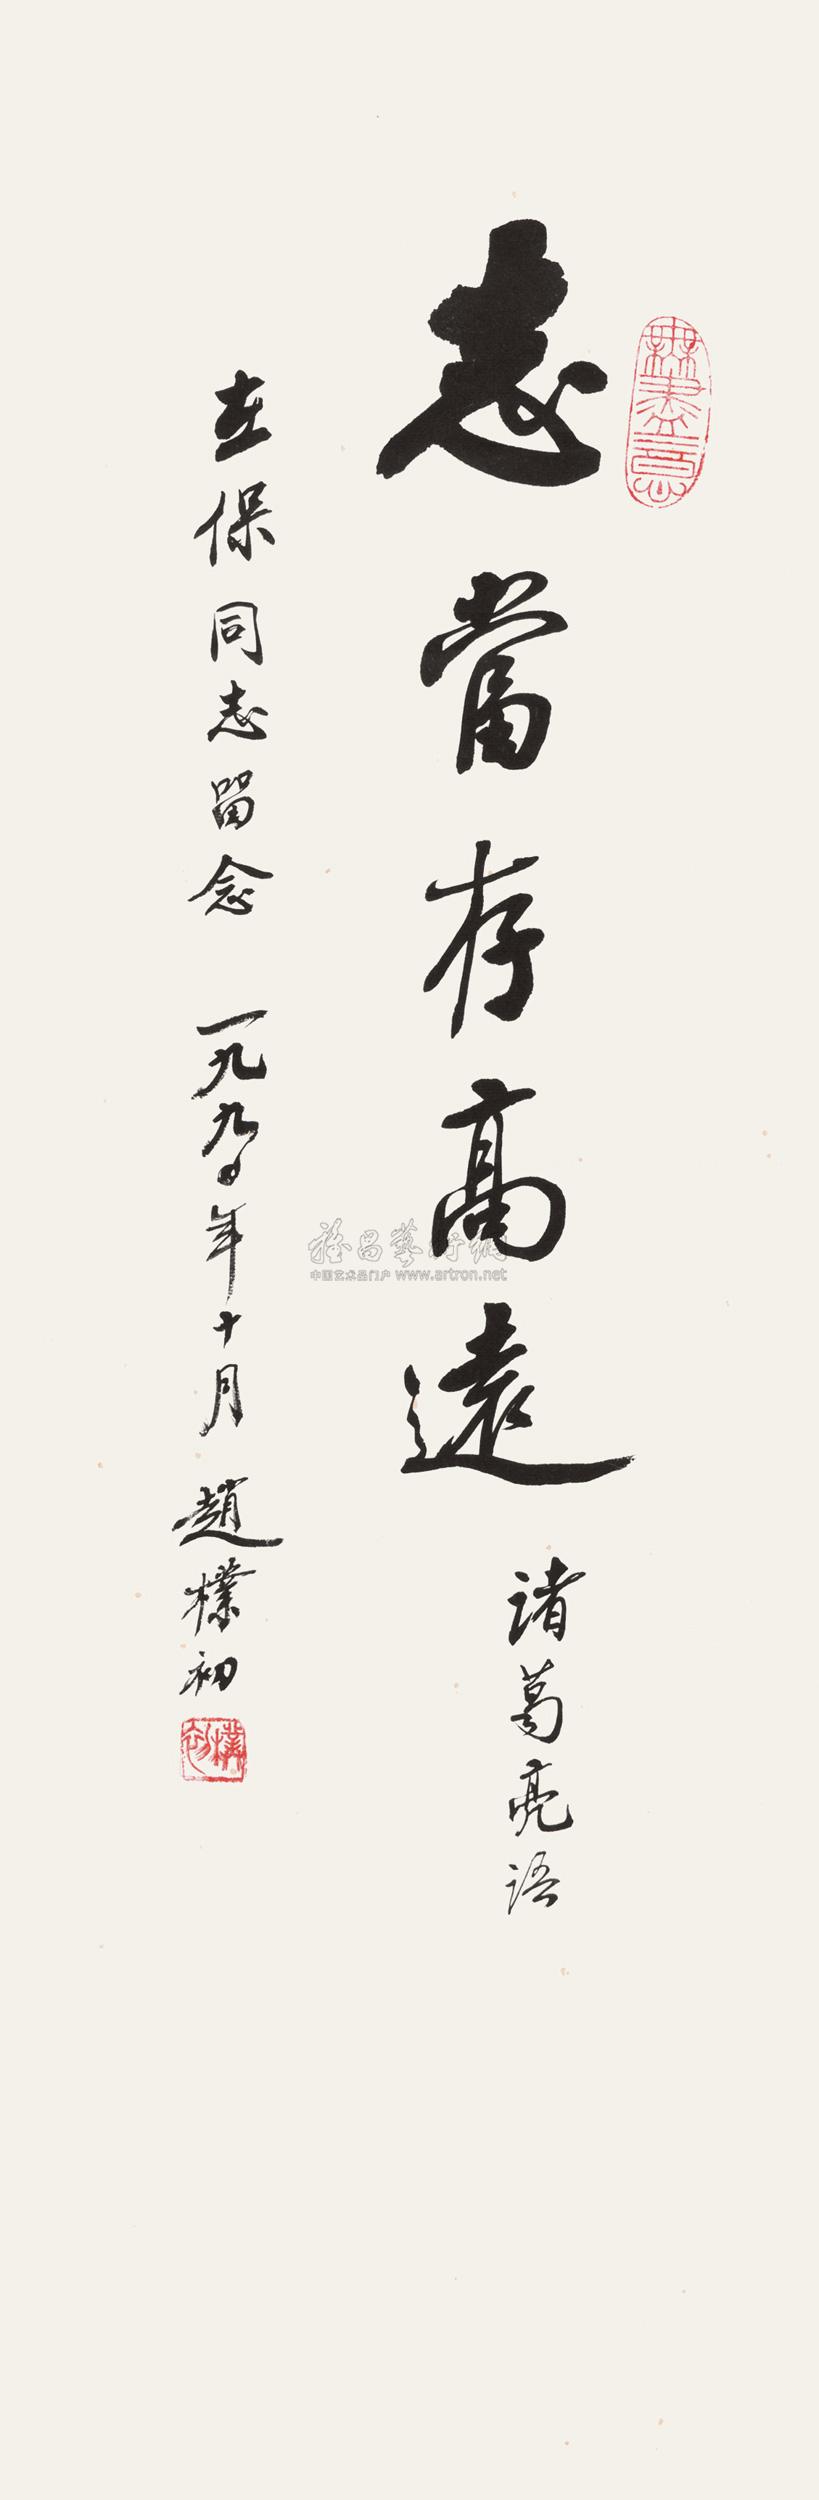 志當存高遠
诸葛亮语
志保同志留念 一九九〇年十月 趙樸初
雅昌藝術網
中国艺术品门户 www.artron.net